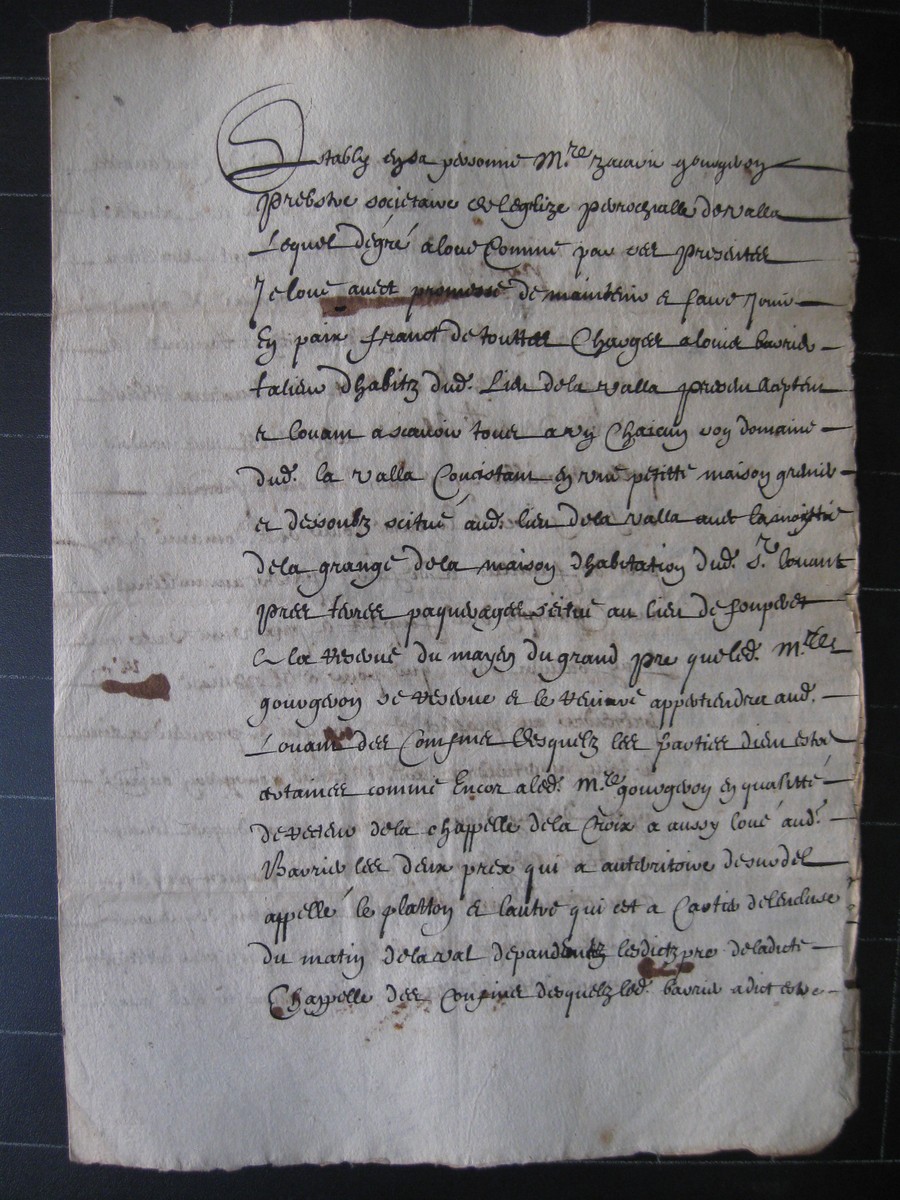 Estably en sa personne M.re zacarie gourgeron
Prebstre societaire en leglize parrochialle de valla
Lequel de gré a loué Comme par ces presentes
Il loue avect promesse de maintenir et faire Jouir
En paix franct de touttes Charges a louis barrier
tallieur dhabitz dud. Lieu de la valla presen acceptan
et louant ascavoir tout a un Chascun son domaine
dud. la valla Concistant en une petitte maison grenier
et dessoubz scitué aud. lieu de la valla avec la moytié
de la grange de la maison dhabitation dud. S.r louant
Pres terres paquerages scitué au lieu de
a la reserve du mayen du grand pre que led. M.re
gourgeron se reserve et le revivre appartiendra aud.
Louant des Confins desquelz les parties dien estre
certaines comme Encor a led. M.re gourgeron en qualitté
de recteur de la chappelle de la Croix a aussy loué aud.
Barrier les deux prex qui a au territoire de
appellé le platton et lautre qui est a Costé de lencluse
du matin de laval depandentz lesdictz pre de ladicte
Chappelle des Confins desquelz led. barrier a dict estre